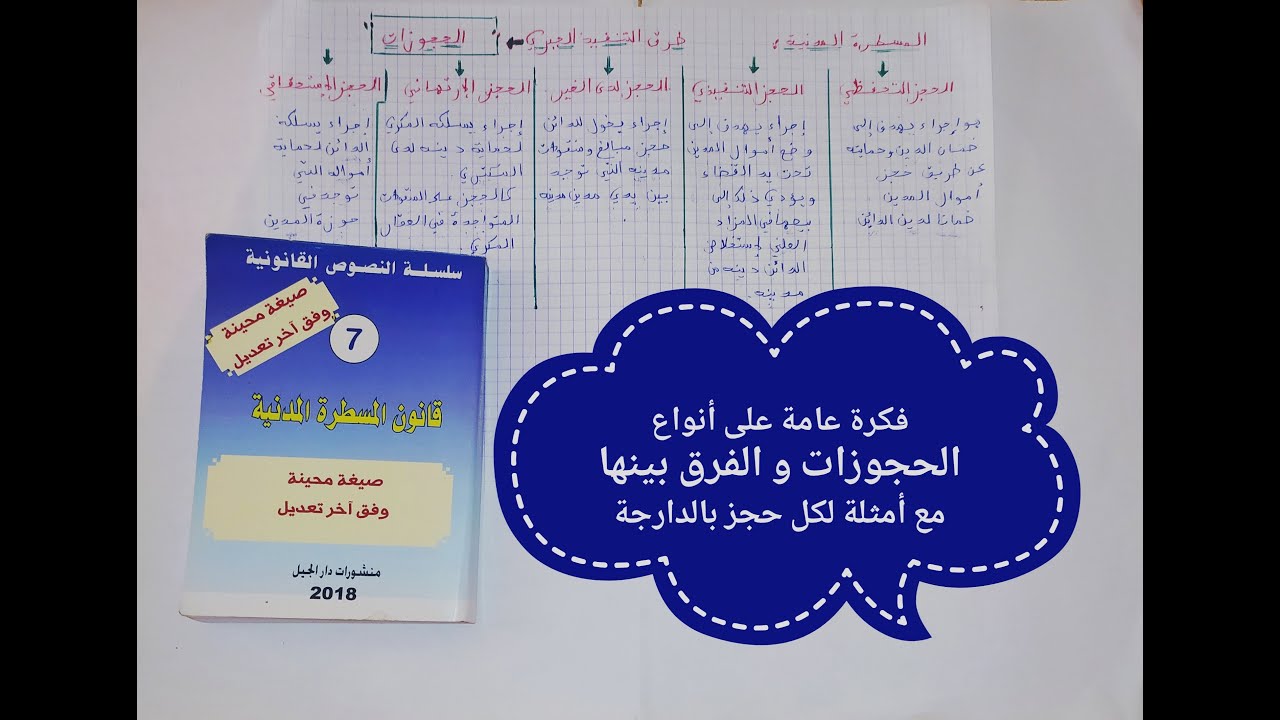 المسطرة المدنية :
طرق التنفيذ الجبري
" الحجوزات "
الحجز التحفظي
هو إجراء يهدف إلى
ضمان الدين وحمايته
عن طريق حجز
أموال المدين
ضمانا لدين الدائن
الحجز التنفيذي
إجراء يهدف إلى
وضع أموال المدين
تحت يد القضاء
ويؤدي ذلك إلى
بيعها في المزاد
العلني لإستخلاص
الدائن دينه من
مدينه.
الحجز لدى الغير
إجراء يخول للدائن
حجز مبالغ ومنقولات
مدينه التي توجد
بين يدي مدين مدينه
.
الحجز الإرتهاني
إجراء يسلكه المكري
لحماية دينه لدى
المكتري.
كالحجز على المنقولات
المتواجدة في العقار
المكري.
الحجز الإستحقاقي
إجراء يسلكه
الدائن لحماية
أمواله التي
توجد في
حوزة المدين
سلسلة النصوص القانونية
صيغة محينة
وفق آخر تعديل
7
قانون المسطرة المدنية
صيغة محينة
وفق آخر تعديل
منشورات دار الجيل
2018
فكرة عامة على أنواع
الحجوزات و الفرق بينها
مع أمثلة لكل حجز بالدارجة